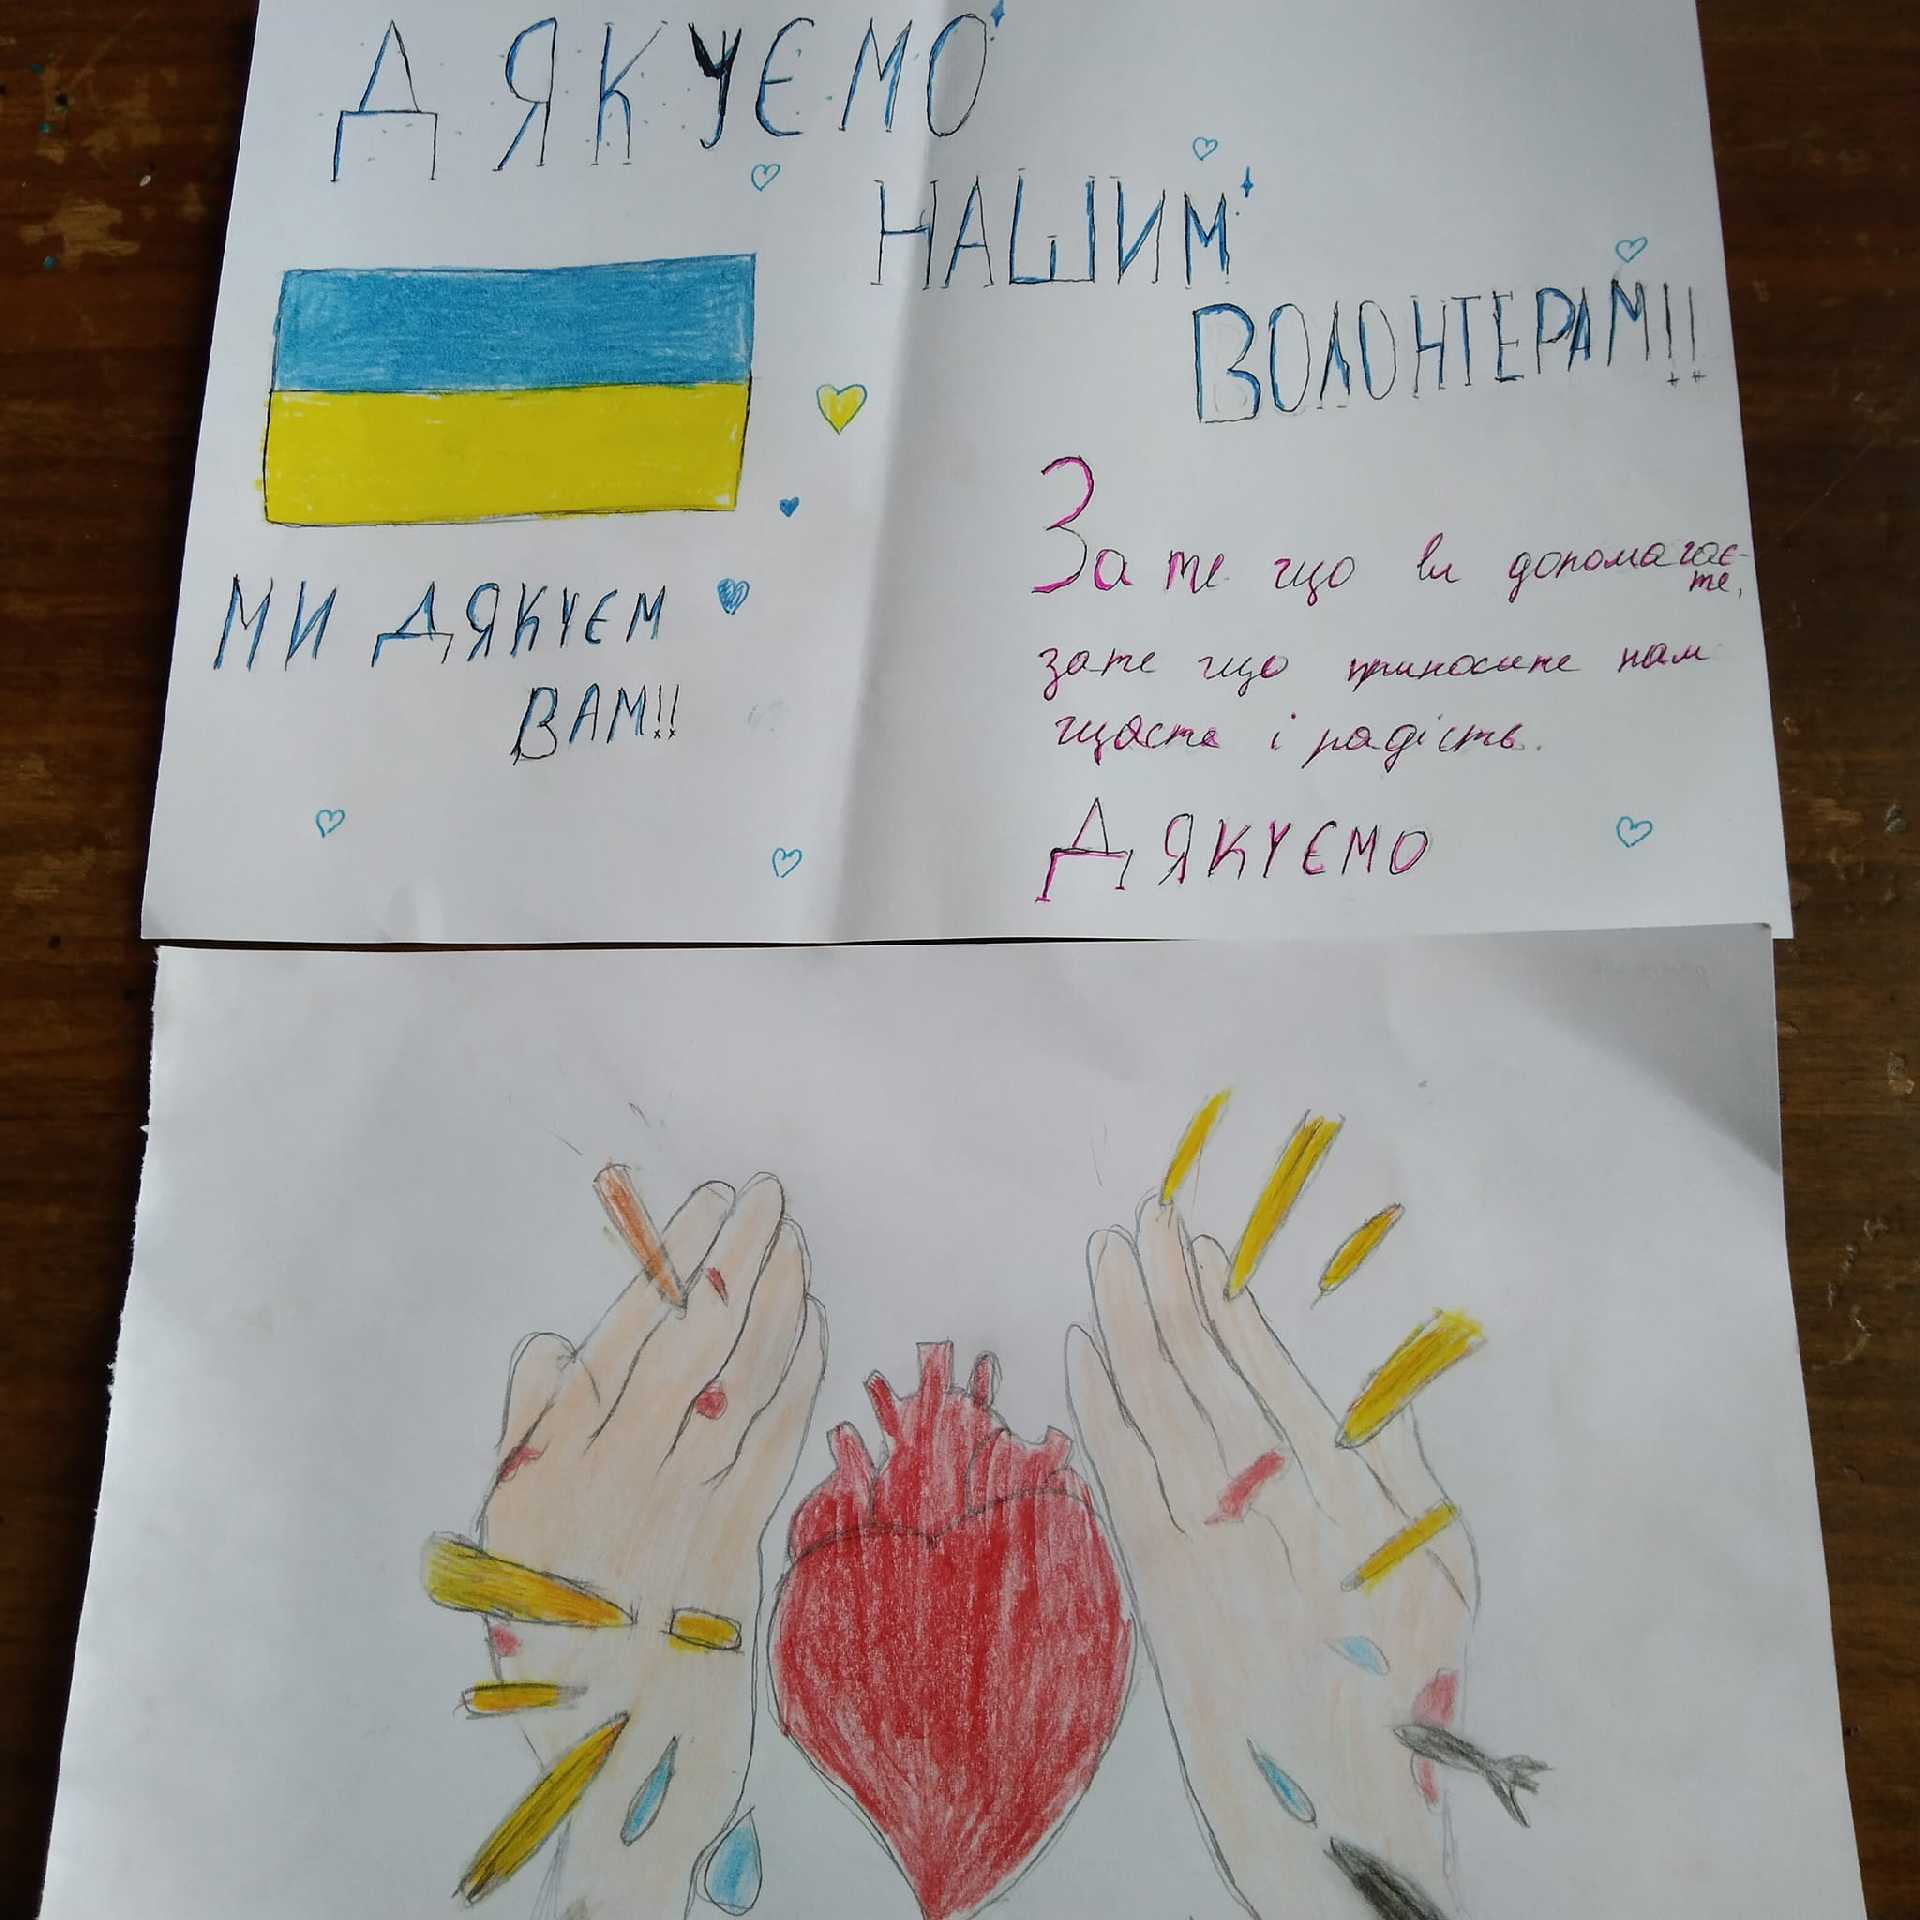 ДЯКУЄМО
НАШИМ
ВОЛОНТЕРАМ!!
МИ ДЯКУЄМ
ВАМ!!
За те що ви допомагає-
те,
зате що приносите нам
щастя і радість.
ДЯКУЄМО